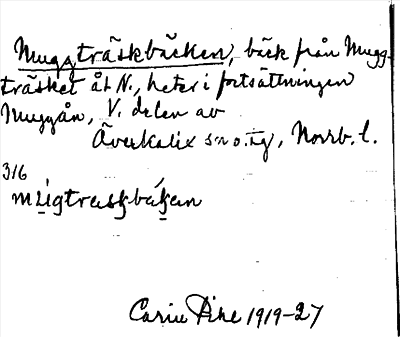 Muggträskbäcken, bäck från Mugg-
träsket åt N., heter i fortsättningen
Muggån, V. delen av
Överkalix sn o. tg, Norrb. l.
316
mu̲igtraskbäkan
Carin Pihl 1919-27